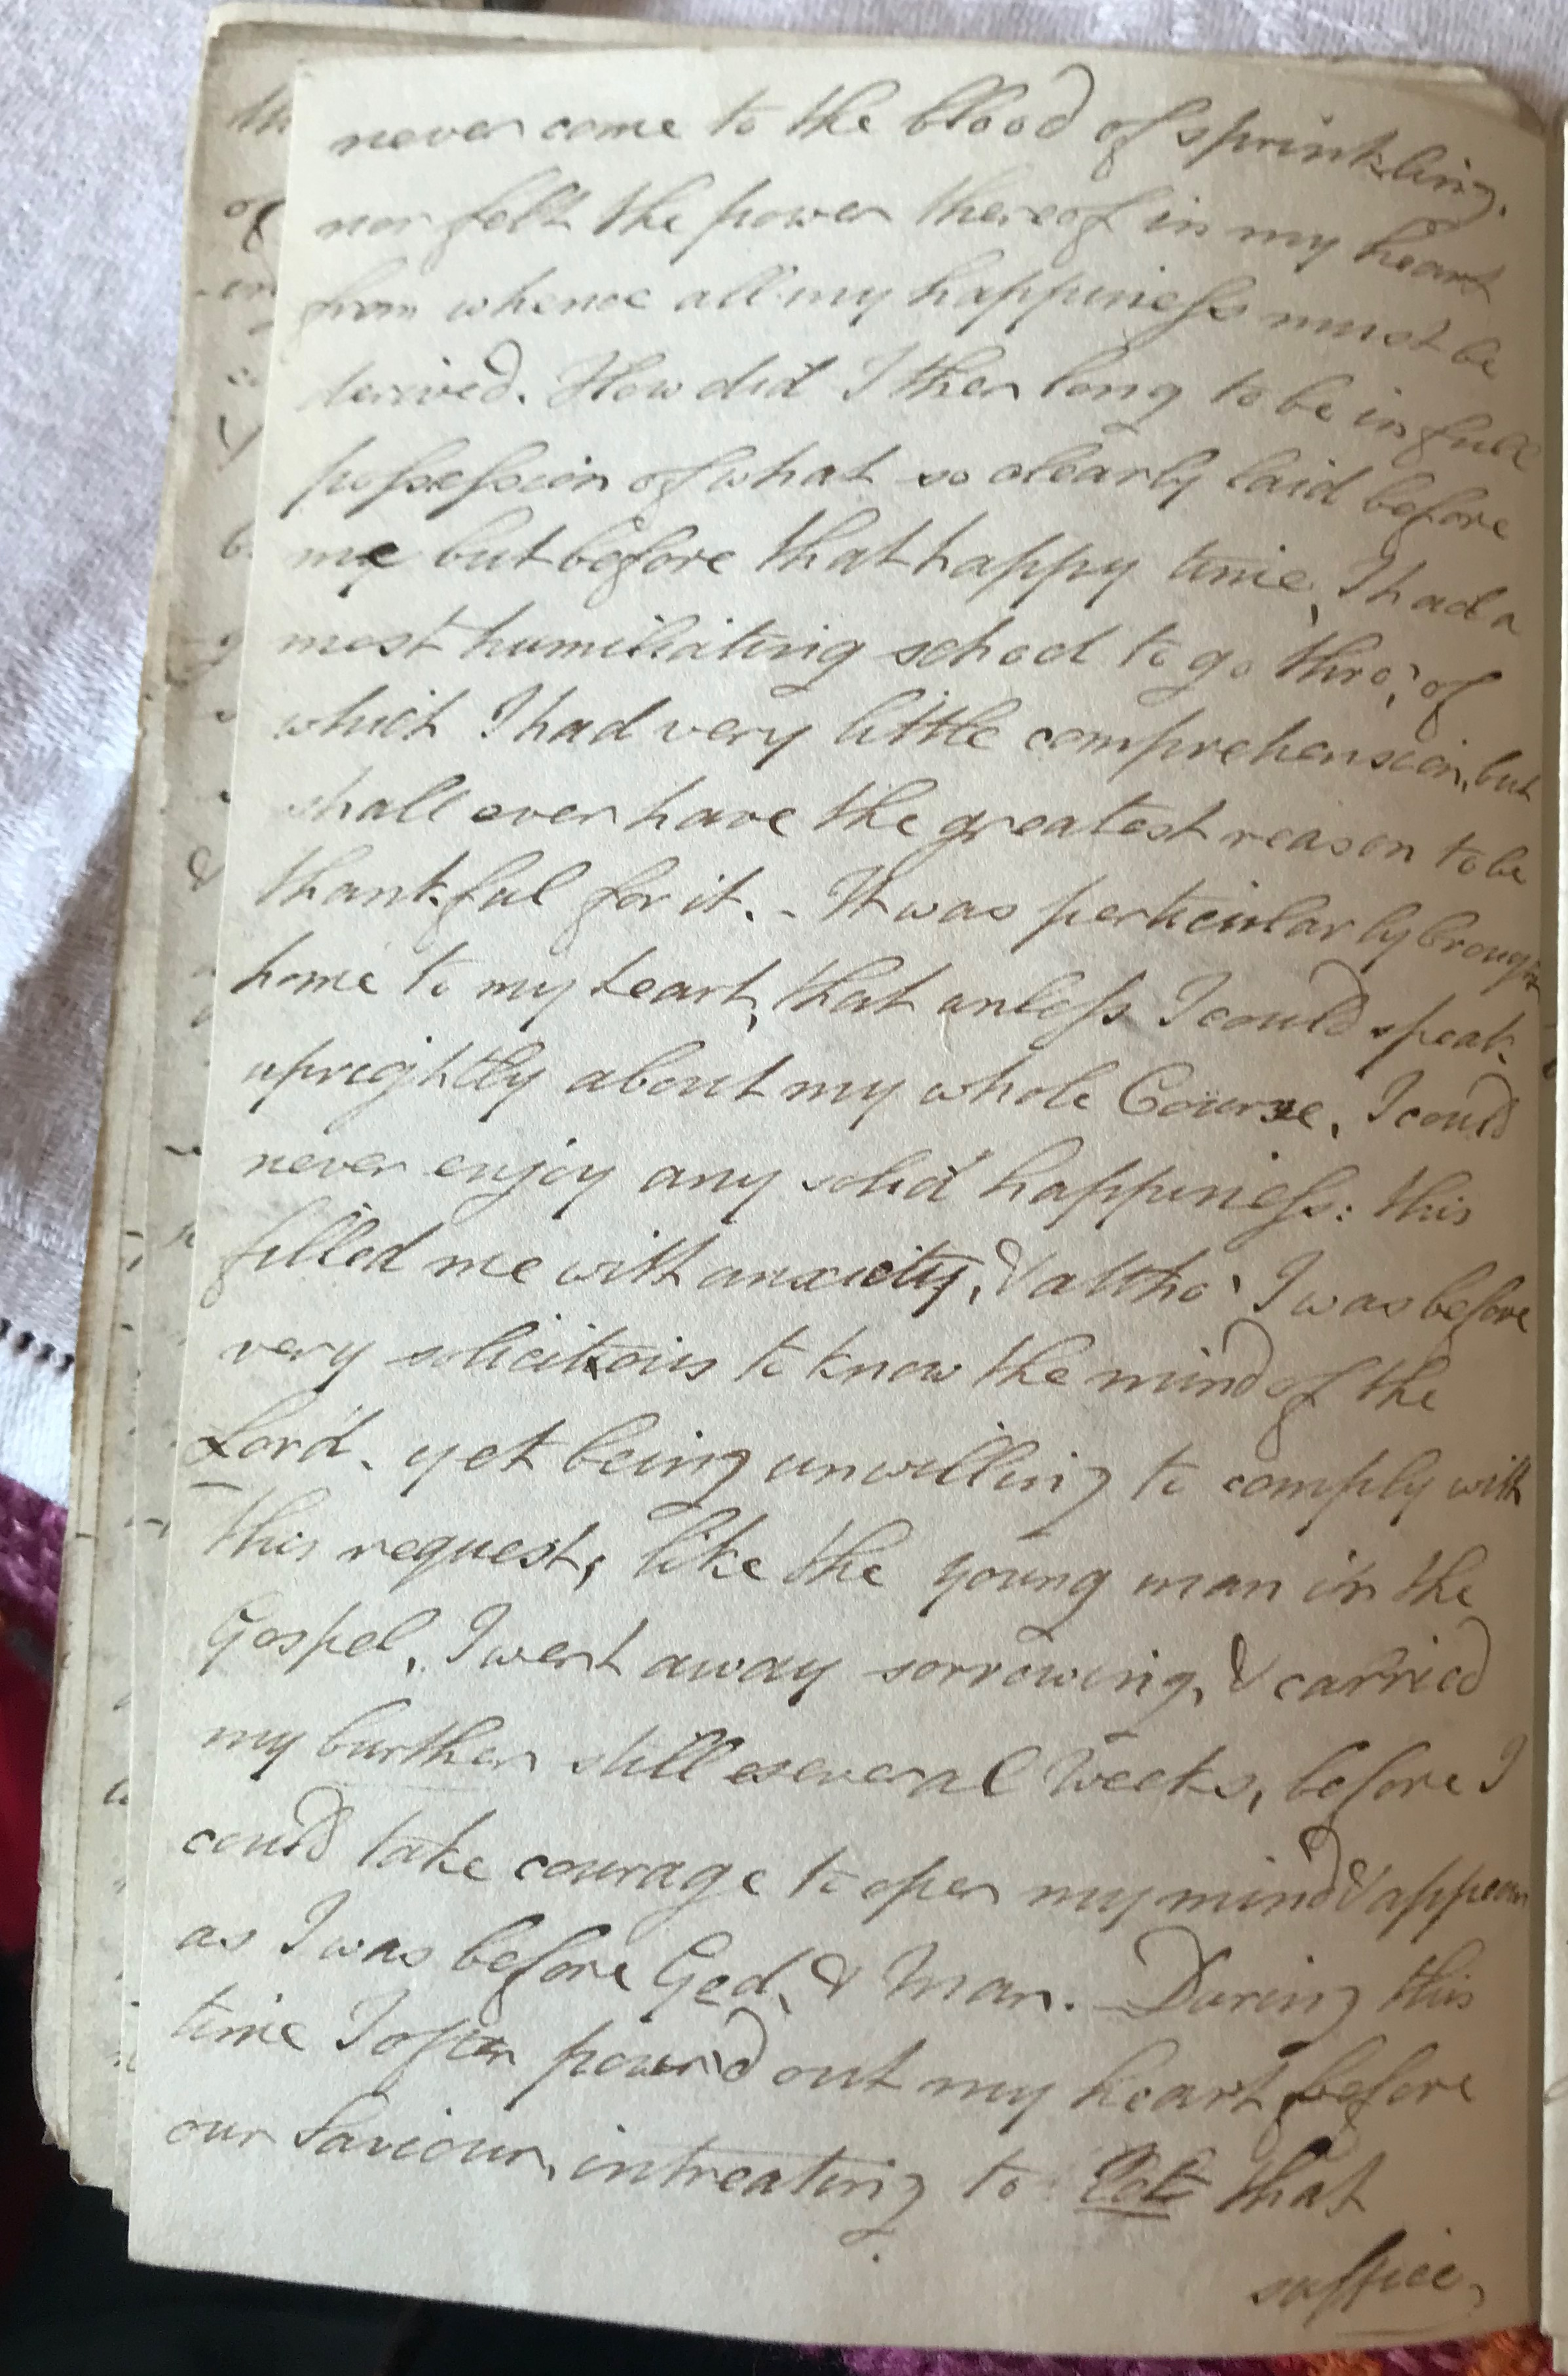 never come to the blood of sprinkling.
nor felt the power thereof in my heart
from whence all my happiness must be
derived. How did I then long to be in full
possession of what so clearly laid before
me but before that happy time, I had a
most humiliating school to go thro', of
which I had very little comprehension, but
shall ever have the greatest reason to be
thankful for it. - It was perticularly brought
home to my heart, that unless I could speak
uprightly about my whole Course, I could
never enjoy any solid happiness: this
filled me with anxiety, & altho' I was before
very solicitous to know the mind of the
Lord, yet being unwilling to comply with
this request, like the young man in the
Gospel, I went away sorrowing, & carried
my burthen still several Weeks, before I
could take courage to open my mind & appear
as I was before God, & Man. During this
time I often pour'd out my heart before
our Saviour, intreating to let that
suffice,